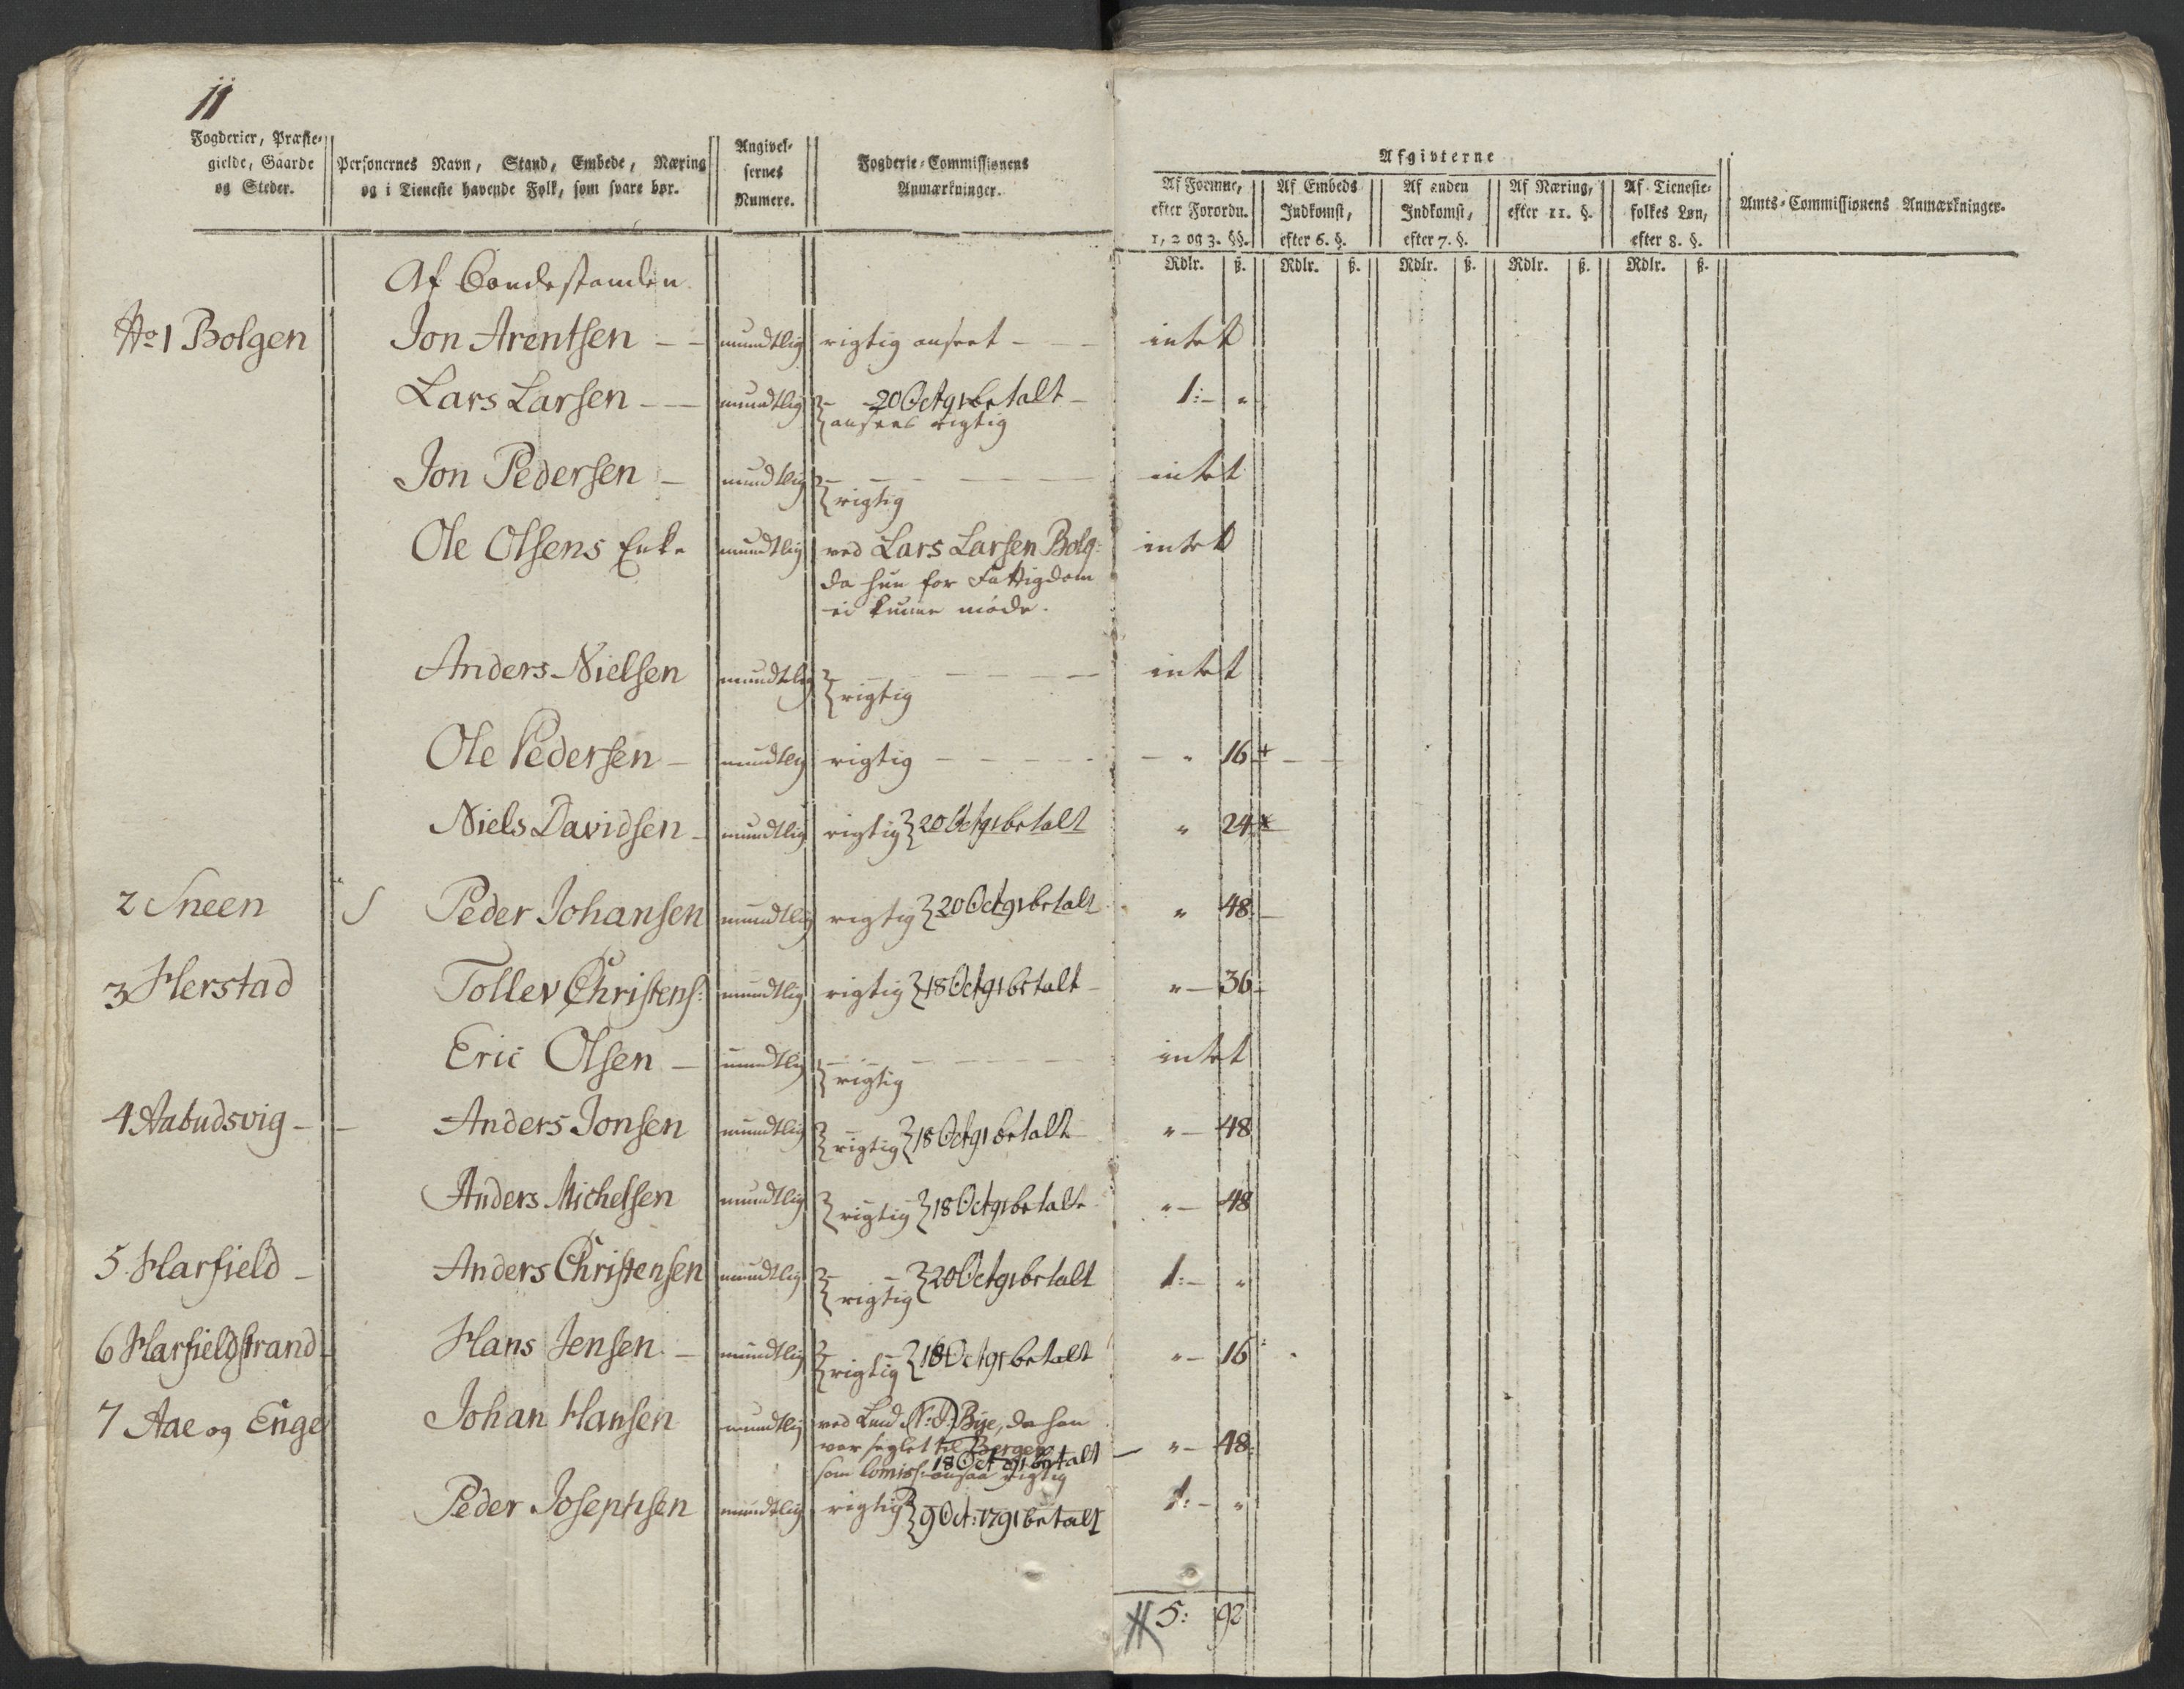 11
Fogderier, Præste-
gielde, Gaarde
og Steder.
Personernes Navn, Stand, Embede, Næring
og i Tieneste havende Folk, som svare bør.
Angivel-
sernes
Numere.
Fogderie-Commissionens
Anmærkninger.
Afgivterne
Af Formue,
efter Forordn.
1, 2 og 3. §§.
Af Embeds
Indkomst,
efter 6. §.
Af anden
Indkomst,
efter 7. §.
Af Næring,
efter 11. §.
Af Tieneste-
folkes Løn,
efter 8. §.
Amts-Commissionens Anmærkninger.
Rdlr. ß. Rdlr. ß. Rdlr. ß. Rdlr. ß. Rdlr. ß.
Af Bondestanden
No 1 Bolgen Jon Arentsen - - mundtlig rigtig anseet - - - intet
Lars Larsen - - mundtlig - 20 Oct 91 betalt - 1:- "
ansees rigtig
Jon Pedersen - mundtlig - - - - - - intet
rigtig
Ole Olsens Enke mundtlig ved Lars Larsen Bolg: intet
da hun for Fattigdom
ei kunne møde.
Anders Nielsen mundtlig - - - - - intet
rigtig
Ole Pedersen - mundtlig rigtig - - - - - - " 16 + - -
Niels Davidsen - mundtlig rigtig } 20 Oct 91 betalt " 24 x
2 Sneen S Peder Johansen mundtlig rigtig } 20 Oct 91 betalt " 48 -
3 Herstad Tollev Christens: mundtlig rigtig } 18 Oct 91 betalt - " - 36 -
Eric Olsen - mundtlig - - - - - - intet
rigtig
4 Aabudsvig - - Anders Jonsen mundtlig rigtig } 18 Oct 91 betalt " - 48
Anders Michelsen mundtlig rigtig } 18 Oct 91 betalt " - 48
5 Harfield - Anders Christensen mundtlig rigtig } 20 Oct 91 betalt 1:- "
6 Harfieldstrand - Hans Jensen - mundtlig rigtig } 18 Oct 91 betalt " - 16
7 Aae og Enge Johan Hansen mundtlig ved N: D: Bye, da han
var seglet til Bergen - " - 48
18 Oct 91 betalt
som ansaa rigtig
Peder Josephsen mundtlig rigtig } 9 Oct: 1791 betalt 1:- "
5: 92